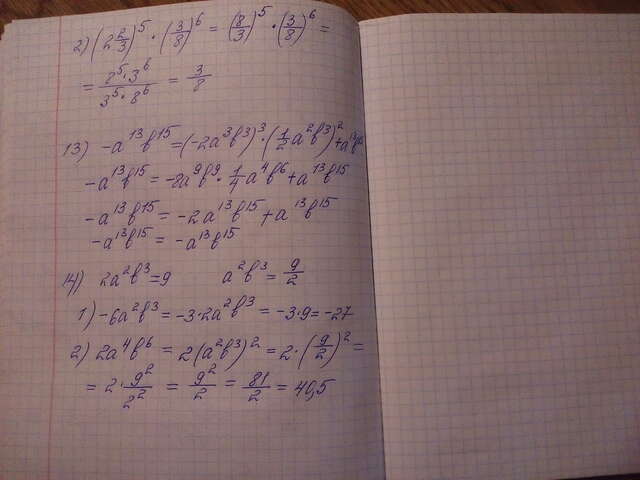 2) (2 2/3)^5 · (3/8)^6 = (8/3)^5 · (3/8)^6 =
= 8^5·3^6 / 3^5·8^6 = 3/8
13) -a^13 b^15 = (-2a^3b^3)^3 · (1/2 a^2b^3)^2 + a^13 b^15
-a^13 b^15 = -8a^9b^9 · 1/4 a^4b^6 + a^13 b^15
-a^13 b^15 = -2a^13 b^15 + a^13 b^15
-a^13 b^15 = -a^13 b^15
14) 2a^2b^3 = 9 a^2b^3 = 9/2
1) -6a^2b^3 = -3·2a^2b^3 = -3·9 = -27
2) 2a^4b^6 = 2(a^2b^3)^2 = 2·(9/2)^2 =
= 2·9^2/2^2 = 9^2/2 = 81/2 = 40,5